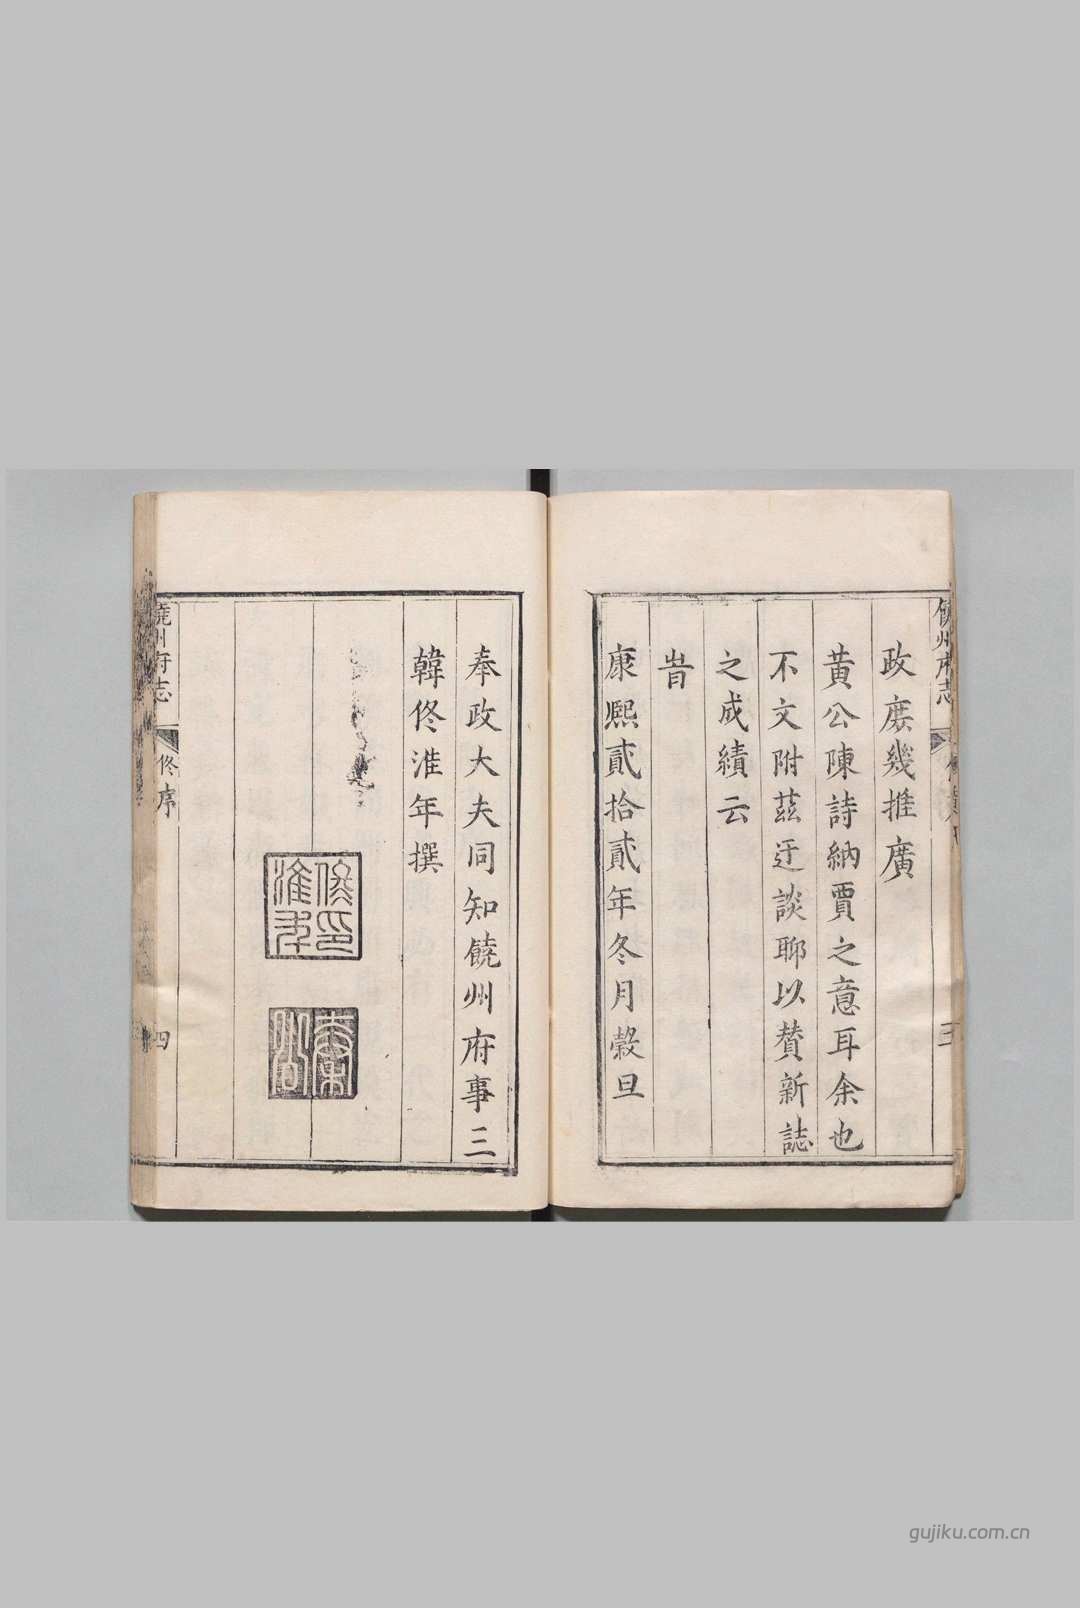 政庶幾推廣
黃公陳詩納賈之意耳余也
不文附茲迂談聊以贊新誌
之成績云
旹
康熙貳拾貳年冬月穀旦
饒州府志
三
奉政大夫同知饒州府事三
韓佟淮年撰
佟印淮年
饒州府志
佟序
四
gujiku.com.cn